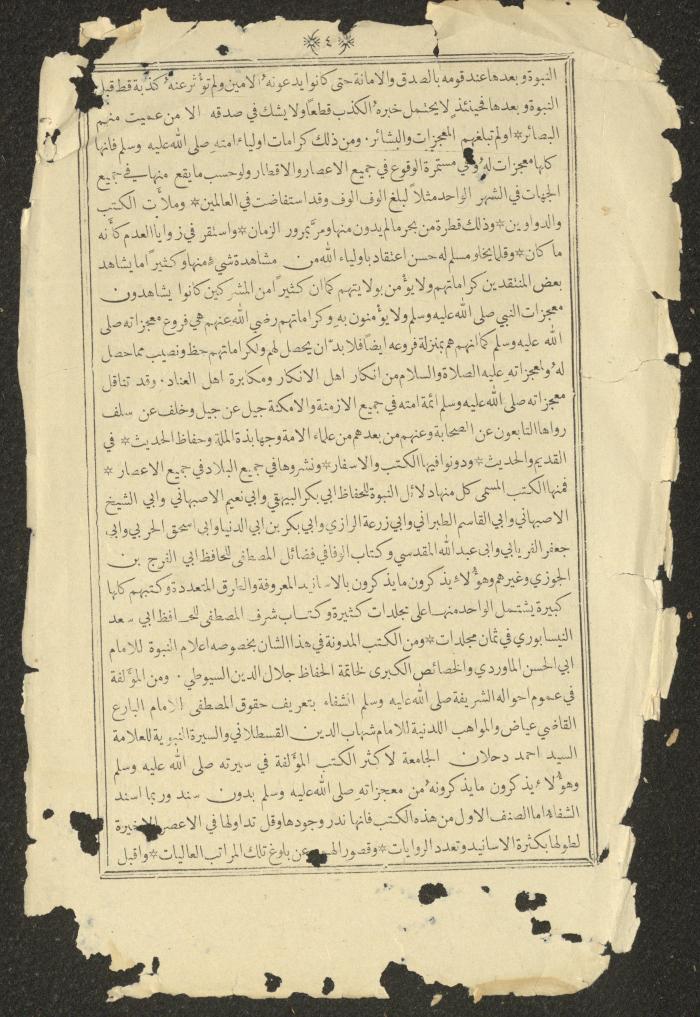 ٤
النبوة وبعدها عند قومه بالصدق والامانة حتى كانوا يدعونه الامين ولم تؤثر عنه كذبة قط قبل
النبوة وبعدها فحينئذ لا يحتمل خبره الكذب قطعاً ولا يشك في صدقه الا من عميت منهم
البصائر* او لم تبلغهم المعجزات والبشائر. ومن ذلك كرامات اولياء امته صلى الله عليه وسلم فانها
كلها معجزات له وهي مستمرة الوقوع في جميع الاعصار والاقطار ولو حسب ما يقع منها في جميع
الجهات في الشهر الواحد مثلاً لبلغ الوف الوف وقد استفاضت في العالمين* وملأت الكتب
والدواوين* وذلك قطرة من بحر ما لم يدون منها ومر بمرور الزمان* واستقر في زوايا العدم كأنه
ما كان* وقلما يخلو مسلم له حسن اعتقاد باولياء الله من مشاهدة شيء منها وكثيراً ما يشاهد
بعض المنتقدين كراماتهم ولا يؤمن بولايتهم كما ان كثيراً من المشركين كانوا يشاهدون
معجزات النبي صلى الله عليه وسلم ولا يؤمنون به وكراماتهم رضي الله عنهم هي فروع معجزاته صلى
الله عليه وسلم كما انهم هم بمنزلة فروعه ايضاً فلا بد ان يحصل لهم ولكراماتهم حظ ونصيب مما حصل
له ولمعجزاته عليه الصلاة والسلام من انكار اهل الانكار ومكابرة اهل العناد. وقد تناقل
معجزاته صلى الله عليه وسلم ائمة امته في جميع الازمنة والامكنة جيل عن جيل وخلف عن سلف
رواها التابعون عن الصحابة وعنهم من بعدهم من علماء الامة وجهابذة الملة وحفاظ الحديث* في
القديم والحديث* ودونوا فيها الكتب والاسفار* ونشروها في جميع البلاد في جميع الاعصار *
فمنها الكتب المسمى كل منها دلائل النبوة للحفاظ ابي بكر البيهقي وابي نعيم الاصبهاني وابي الشيخ
الاصبهاني وابي القاسم الطبراني وابي زرعة الرازي وابي بكر بن ابي الدنيا وابي اسحق الحربي وابي
جعفر الفريابي وابي عبد الله المقدسي وكتاب الوفا في فضائل المصطفى للحافظ ابي الفرج بن
الجوزي وغيرهم وهؤلاء يذكرون ما يذكرون بالاسانيد المعروفة والطرق المتعددة وكتبهم كلها
كبيرة يشتمل الواحد منها على مجلدات كثيرة وكتاب شرف المصطفى للحافظ ابي سعد
النيسابوري في ثمان مجلدات* ومن الكتب المدونة في هذا الشان بخصوصه اعلام النبوة للامام
ابي الحسن الماوردي والخصائص الكبرى لخاتمة الحفاظ جلال الدين السيوطي. ومن المؤلفة
في عموم احواله الشريفة صلى الله عليه وسلم الشفاء بتعريف حقوق المصطفى للامام البارع
القاضي عياض والمواهب اللدنية للامام شهاب الدين القسطلاني والسيرة النبوية للعلامة
السيد احمد دحلان الجامعة لاكثر الكتب المؤلفة في سيرته صلى الله عليه وسلم
وهؤلاء يذكرون ما يذكرونه من معجزاته صلى الله عليه وسلم بدون سند وربما اسند
الشفاء اما الصنف الاول من هذه الكتب فانها ندر وجودها وقل تداولها في الاعصر الاخيرة
لطولها بكثرة الاسانيد وتعدد الروايات* وقصور الهمم عن بلوغ تلك المراتب العاليات* واقبل